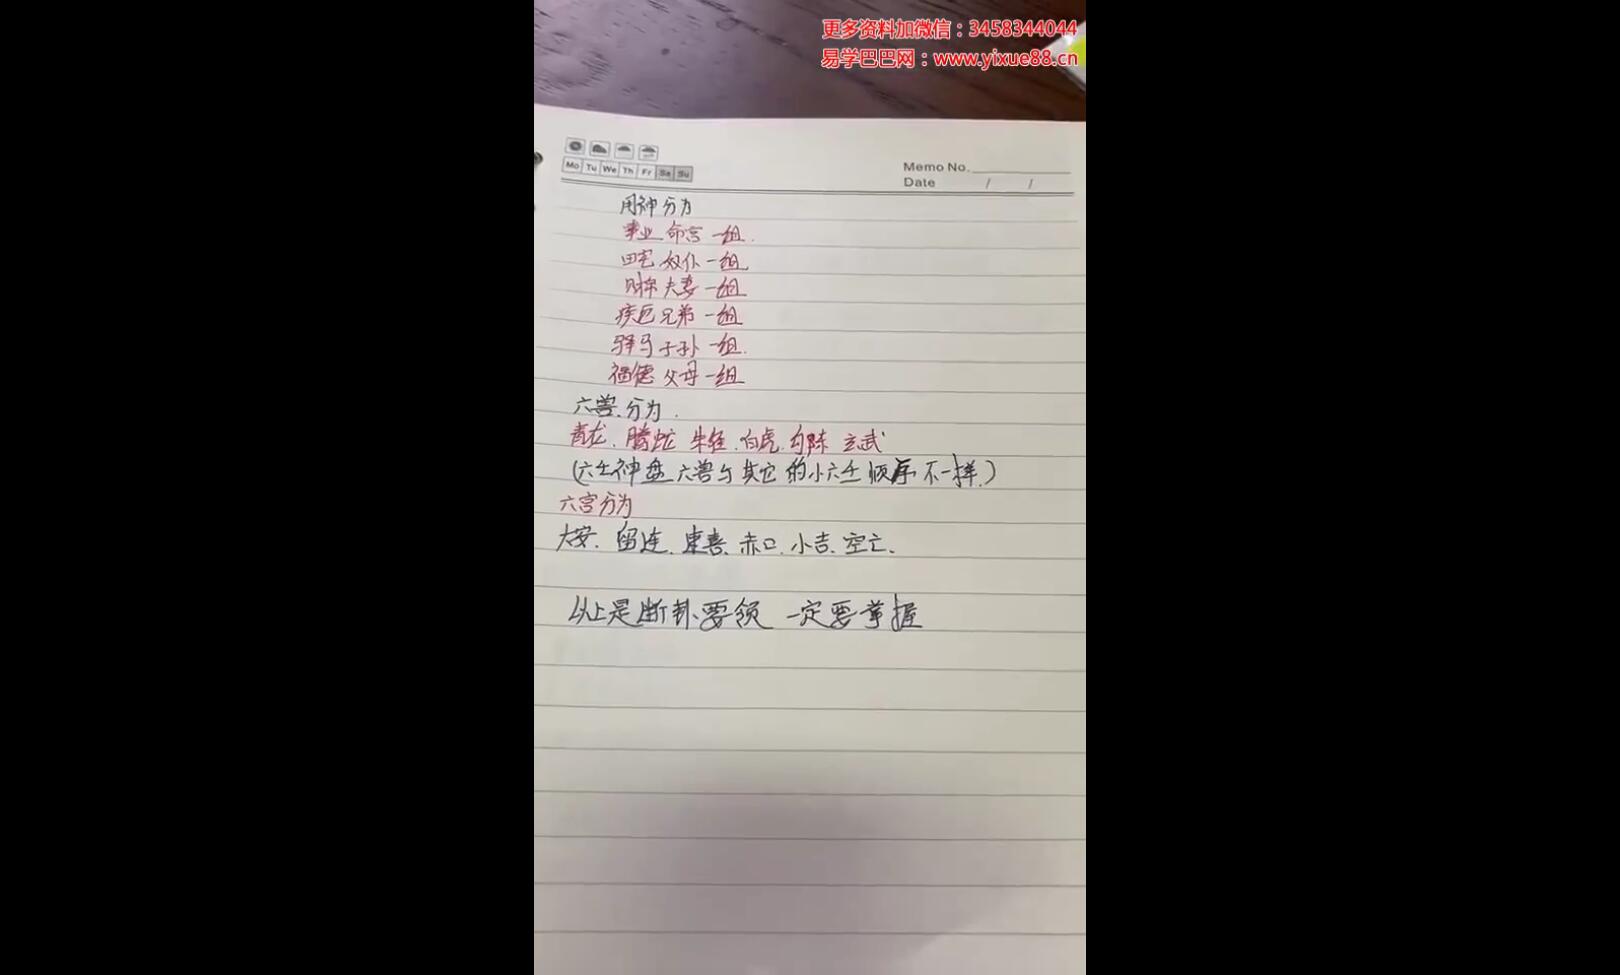 更多资料加微信：3458344044
易学巴巴网：www.yixue88.cn
Mo Tu We Th Fr Sa Su
Memo No.
Date / /
用神分为
事业 命宫 一组.
田宅 奴仆 一组
财帛 夫妻 一组
疾厄 兄弟 一组
驿马 子孙 一组.
福德 父母 一组
六兽.分为.
青龙. 腾蛇 朱雀.白虎.勾陈 玄武
(六壬神盘六兽与其它的小六壬顺序不一样.)
六宫分为
大安. 留连. 速喜. 赤口. 小吉. 空亡.
以上是断卦要领 一定要掌握